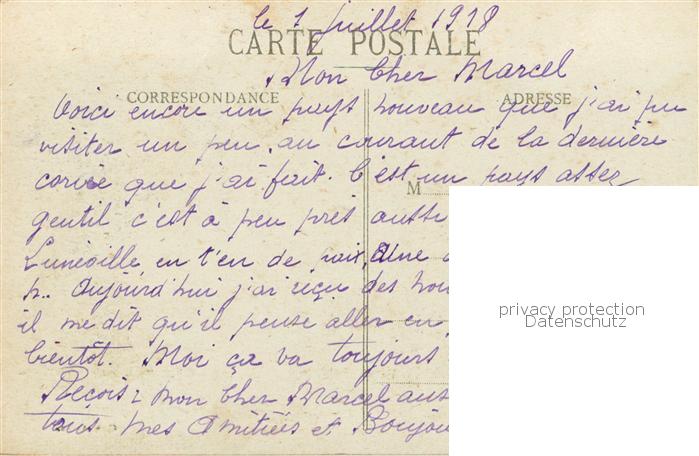 le 1 juillet 1918
CARTE POSTALE
Mon Cher Marcel
CORRESPONDANCE
ADRESSE
Voici encore un pays nouveau que j'ai pu
visiter un peu, au courant de la dernière
corvée que j'ai fait. C'est un pays assez
M
gentil c'est à peu près aussi
Lunéville en t'en de paix, Une
Aujourd'hui j'ai reçu des
il me dit qu'il pense aller en
bientôt. Moi ça va toujours
Reçois mon Cher Marcel
tous mes Amitiés et
privacy protection
Datenschutz